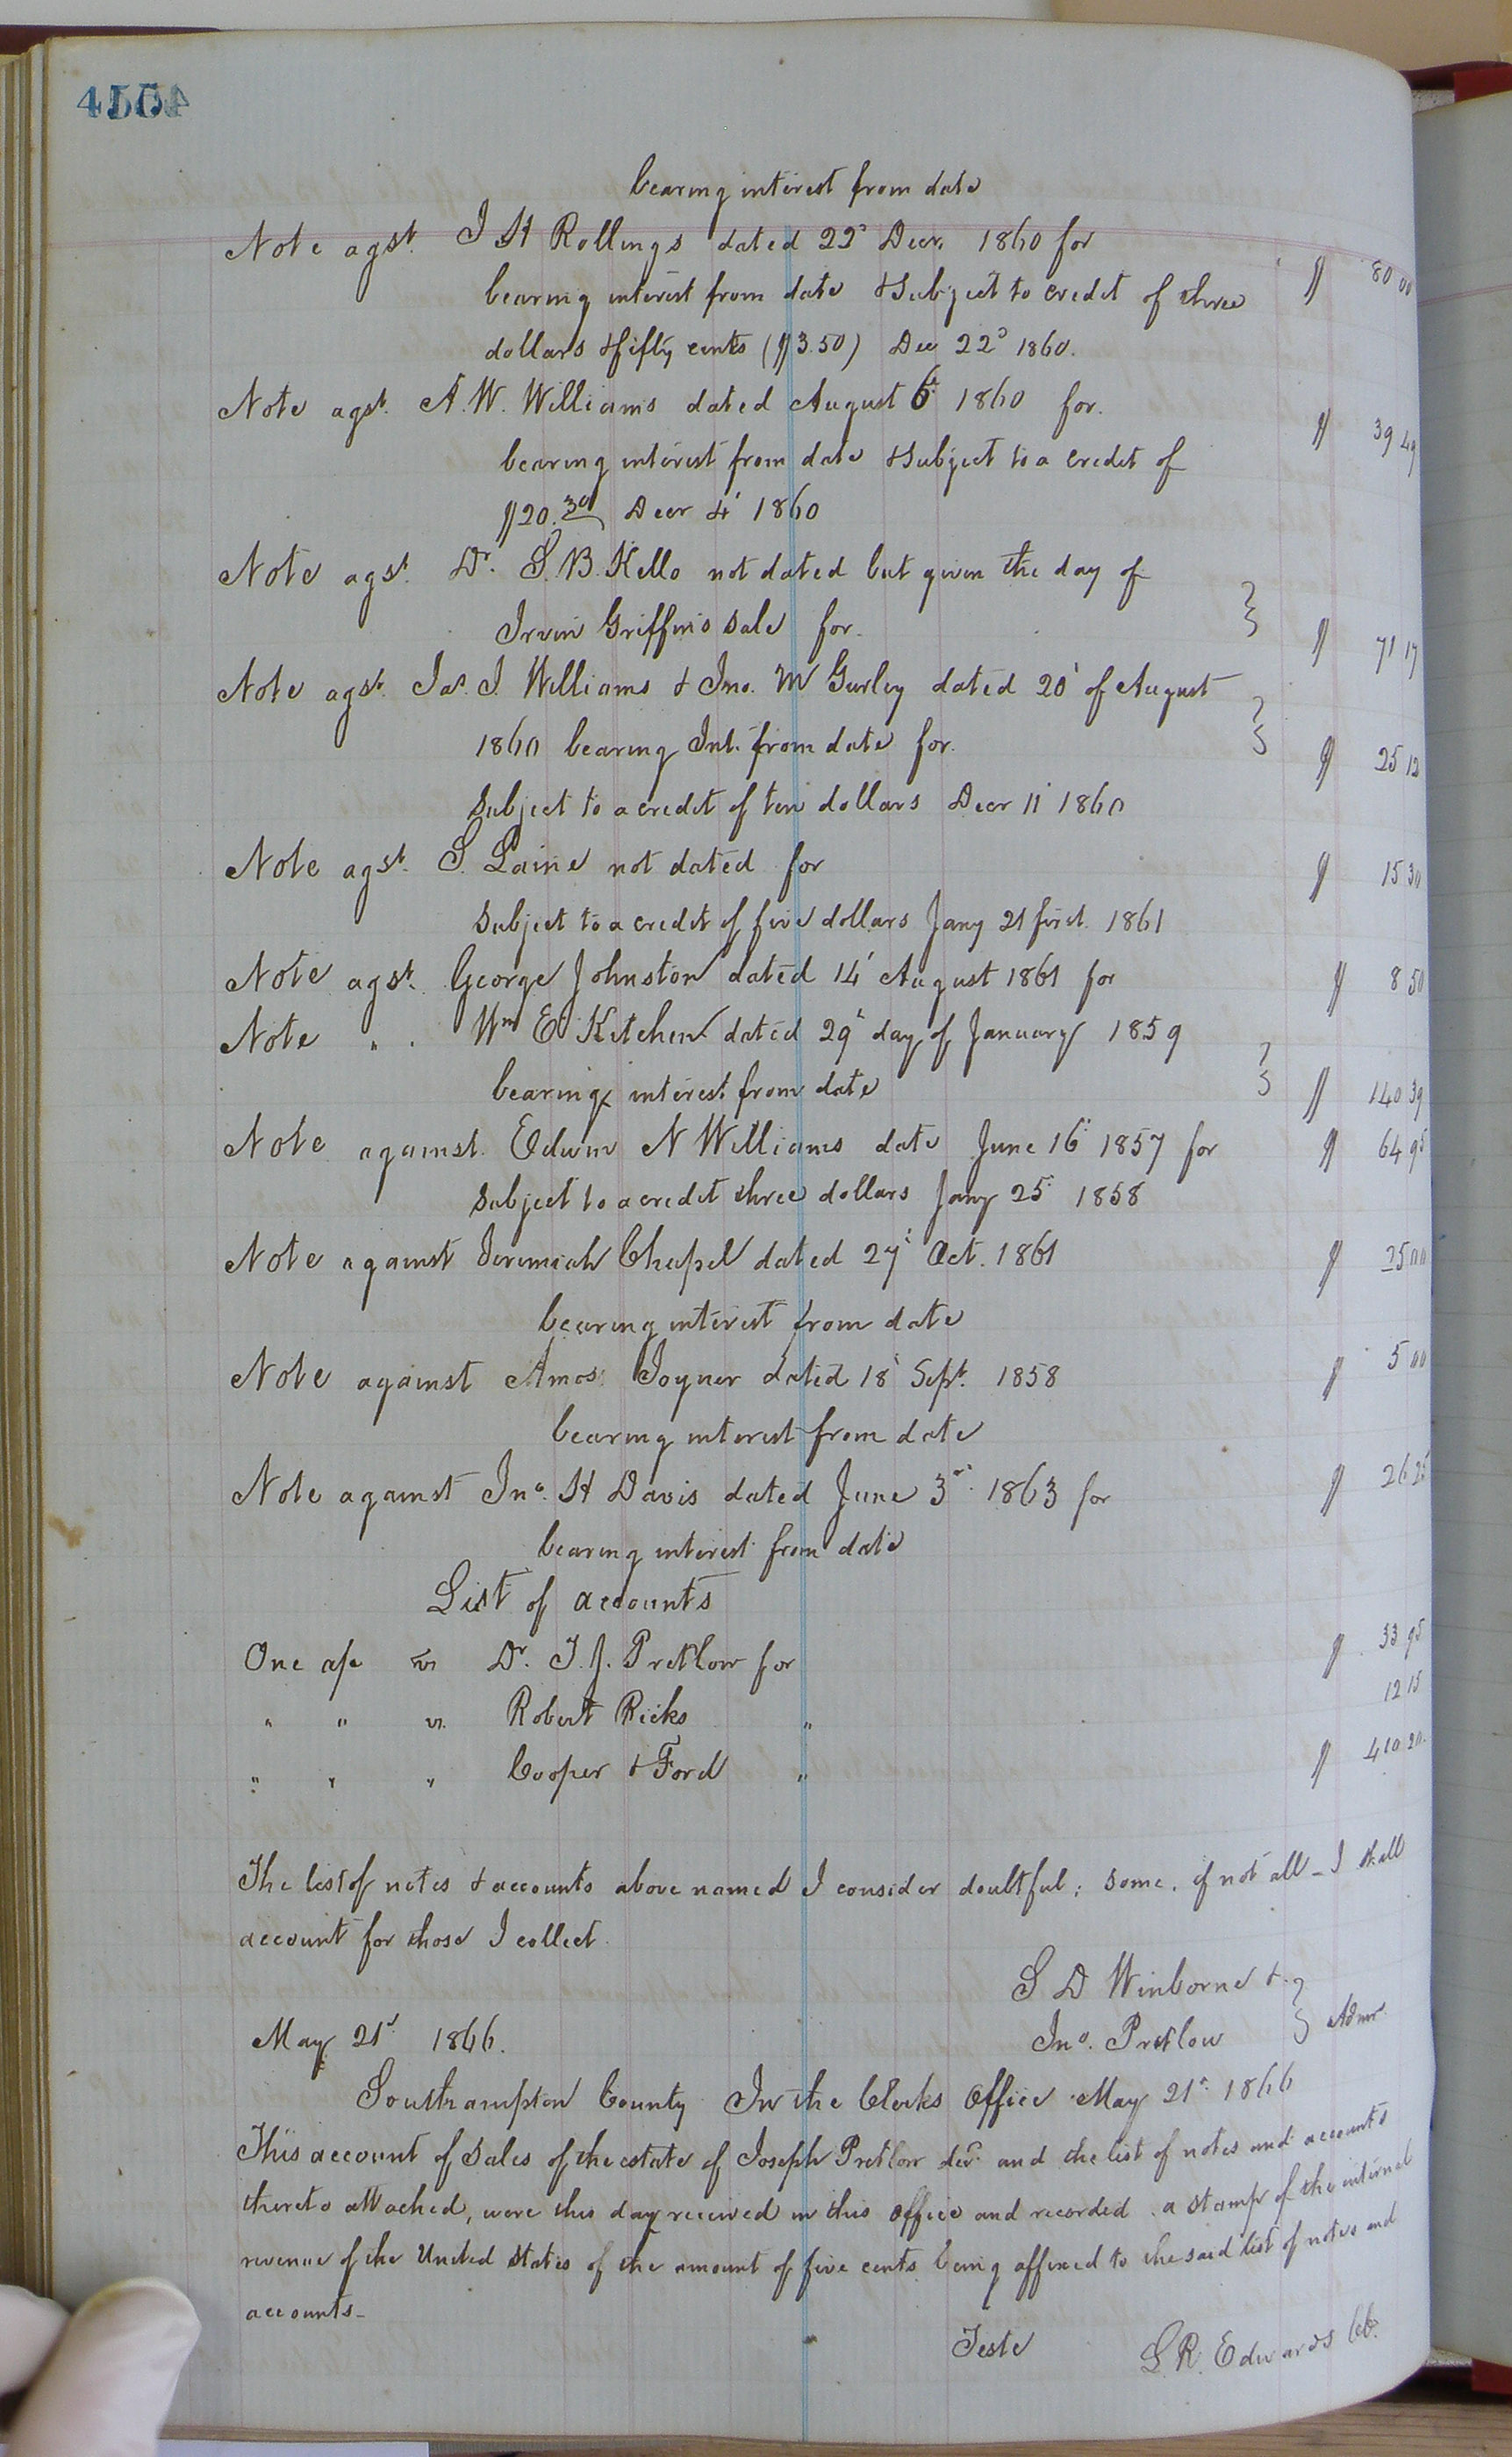 bearing interest from date
Note agst. J H Rollings dated 22d Decr. 1860 for $ 80 00
bearing interest from date & Subject to credit of three
dollars & fifty cents ($3.50) Dec 22d 1860.
Note agst. A. W. Williams dated August 6th 1860 for. $ 39 49
bearing interest from date & Subject to a credit of
$20.30 Decr 4' 1860
Note agst. Dr. S. B. Kello not dated but given the day of
Irvin Griffins Sale for. $ 71 17
Note agst. Jas. J. Williams & Jno. W Gurley dated 20' of August
1860 bearing Int. from date for. $ 25 12
Subject to a credit of ten dollars Decr 11' 1860
Note agst. S. Laine not dated for $ 15 30
Subject to a credit of five dollars Jany 21 first 1861
Note agst. George Johnston dated 14' August 1861 for $ 8 50
Note " " Wm E Kitchen dated 29' day of January 1859
bearing interest from date $ 140 39
Note against. Edwin N Williams date June 16' 1857 for $ 64 95
Subject to a credit three dollars Jany 25' 1858
Note against Jeremiah Chapel dated 27' Oct. 1861 $ 25 00
bearing interest from date
Note against Amos Joyner dated 18' Sept. 1858 $ 5 00
bearing interest from date
Note against Jno. H Davis dated June 3rd 1863 for $ 26 25
bearing interest from date
List of accounts
One a/c vs Dr. T. J. Pretlow for $ 33 95
" " vs. Robert Ricks " 12 15
" " " Cooper & Ford " $ 410 20.
The list of notes & accounts above named I consider doubtful; some, if not all - I shall
account for those I collect.
S D Winborne &
May 21st 1866. Jno. Pretlow } Admr.
Southampton County In the Clerks Office May 21st 1866
This account of Sales of the estate of Joseph Pretlow decd. and the list of notes and accounts
thereto attached, were this day received in this Office and recorded. a stamp of the internal
revenue of the United States of the amount of five cents being affixed to the said list of notes and
accounts-
Teste L. R. Edwards